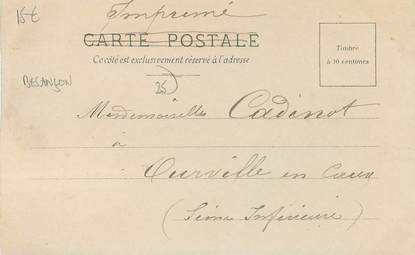 15€
Imprimé
CARTE POSTALE
Ce côté est exclusivement réservé à l'adresse
Timbre
à 10 centimes
BESANÇON
25
Mesdemoiselles Cadinot
à
Ourville en Caux
(Seine Inférieure)